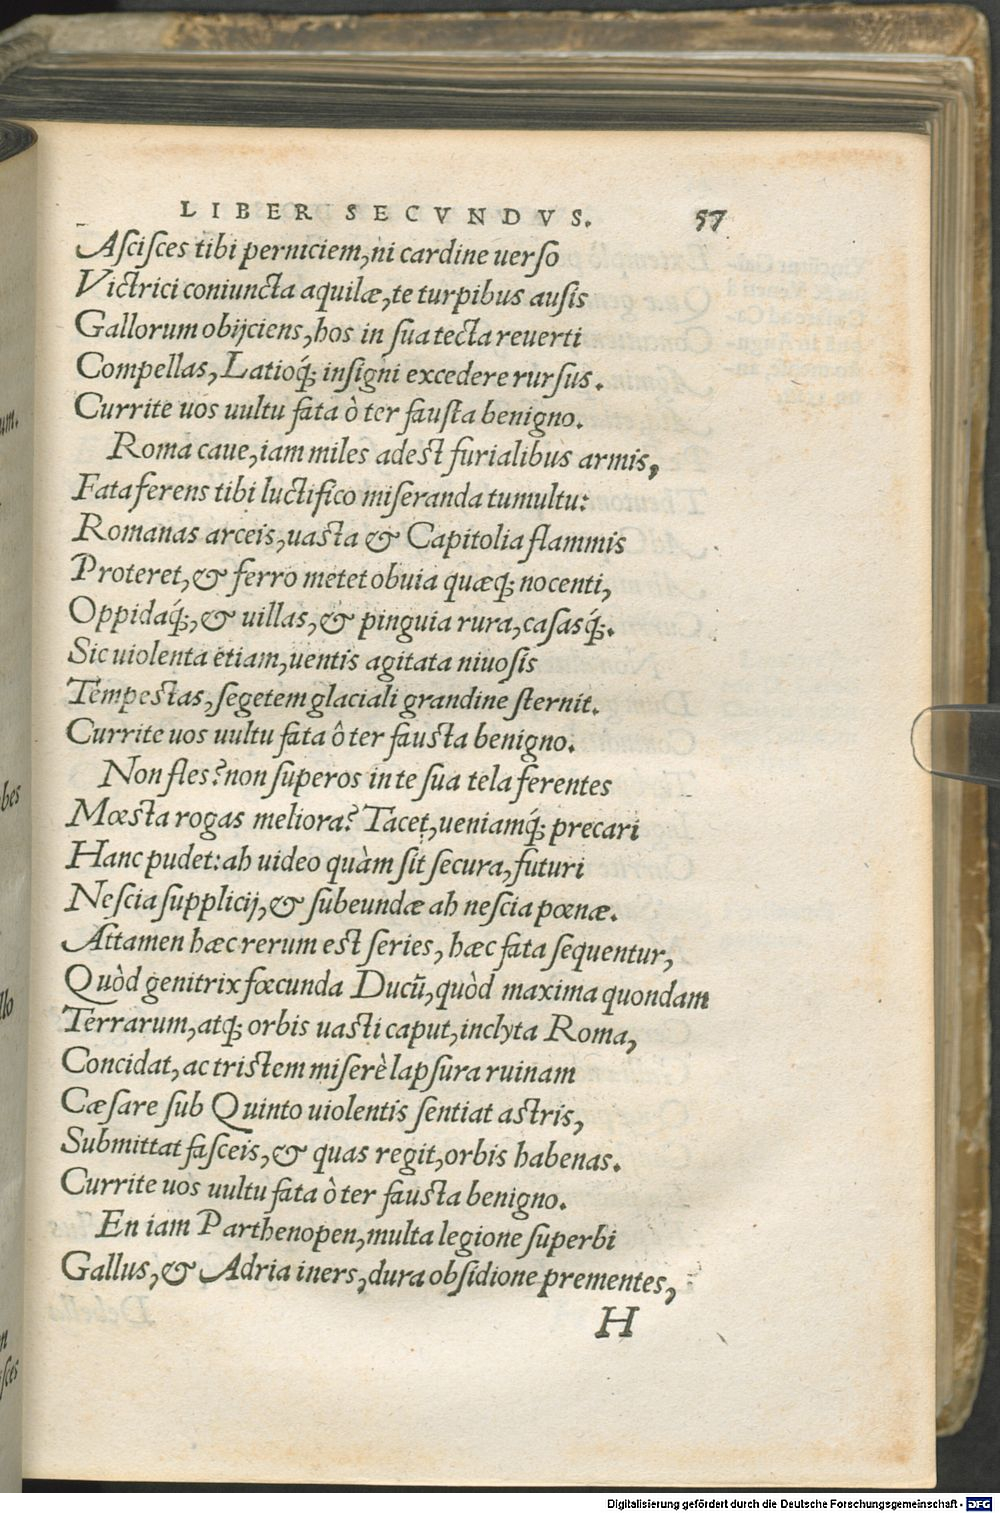 LIBER SECVNDVS. 57
Ascisces tibi perniciem, ni cardine uerso
Victrici coniuncta aquilæ, te turpibus ausis
Gallorum obijciens, hos in sua tecta reuerti
Compellas, Latioq́; insigni excedere rursus.
Currite uos uultu fata ò ter fausta benigno.
Roma caue, iam miles adest furialibus armis,
Fata ferens tibi luctifico miseranda tumultu:
Romanas arceis, uasta & Capitolia flammis
Proteret, & ferro metet obuia quæq; nocenti,
Oppidaq́;, & uillas, & pinguia rura, casasq́;.
Sic uiolenta etiam, uentis agitata niuosis
Tempestas, segetem glaciali grandine sternit.
Currite uos uultu fata ô ter fausta benigno.
Non fles? non superos in te sua tela ferentes
Mœsta rogas meliora? Tacet, ueniamq́; precari
Hanc pudet: ah uideo quàm sit secura, futuri
Nescia supplicij, & subeundæ ah nescia pœnæ.
Attamen hæc rerum est series, hæc fata sequentur,
Quòd genitrix fœcunda Ducū, quòd maxima quondam
Terrarum, atq; orbis uasti caput, inclyta Roma,
Concidat, ac tristem miserè lapsura ruinam
Cæsare sub Quinto uiolentis sentiat astris,
Submittat fasceis, & quas regit, orbis habenas.
Currite uos uultu fata ò ter fausta benigno.
En iam Parthenopen, multa legione superbi
Gallus, & Adria iners, dura obsidione prementes,
H
um.
bes
llo
n
sces
Digitalisierung gefördert durch die Deutsche Forschungsgemeinschaft - DFG